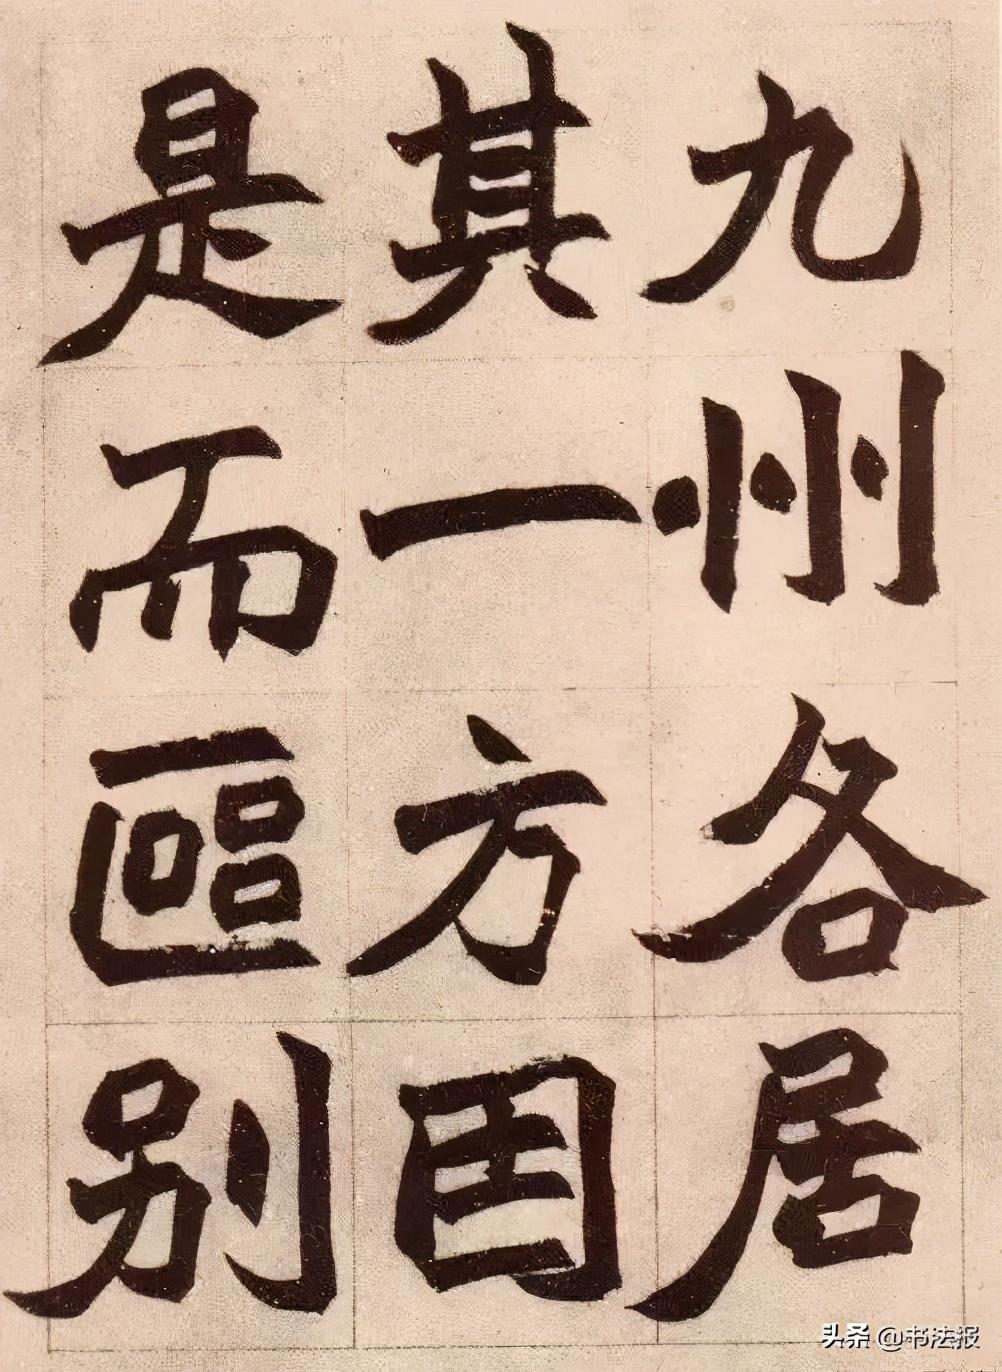 九州各居
其一方囙
是而區别
头条 @书法报